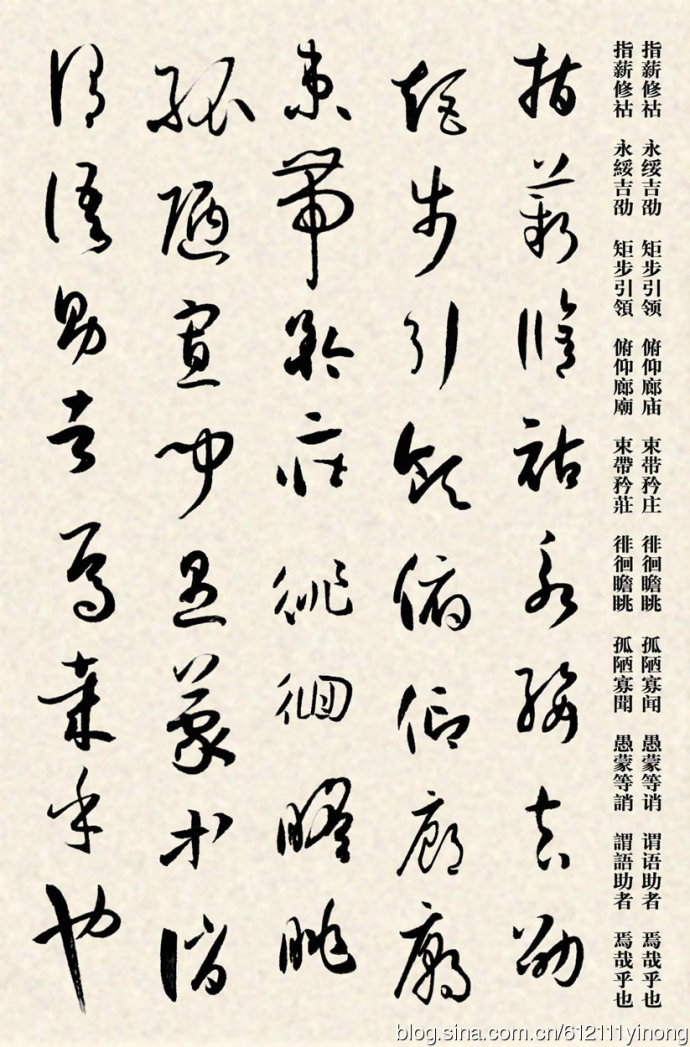 指薪修祜 永绥吉劭 矩步引领 俯仰廊庙 束带矜庄 徘徊瞻眺 孤陋寡闻 愚蒙等诮 谓语助者 焉哉乎也
指薪修祜 永綏吉劭 矩步引領 俯仰廊廟 束帶矜莊 徘徊瞻眺 孤陋寡聞 愚蒙等誚 謂語助者 焉哉乎也
指薪修祜永綏吉劭
矩步引領俯仰廊廟
束帶矜莊徘徊瞻眺
孤陋寡聞愚蒙等誚
謂語助者焉哉乎也
blog.sina.com.cn/612111yinong